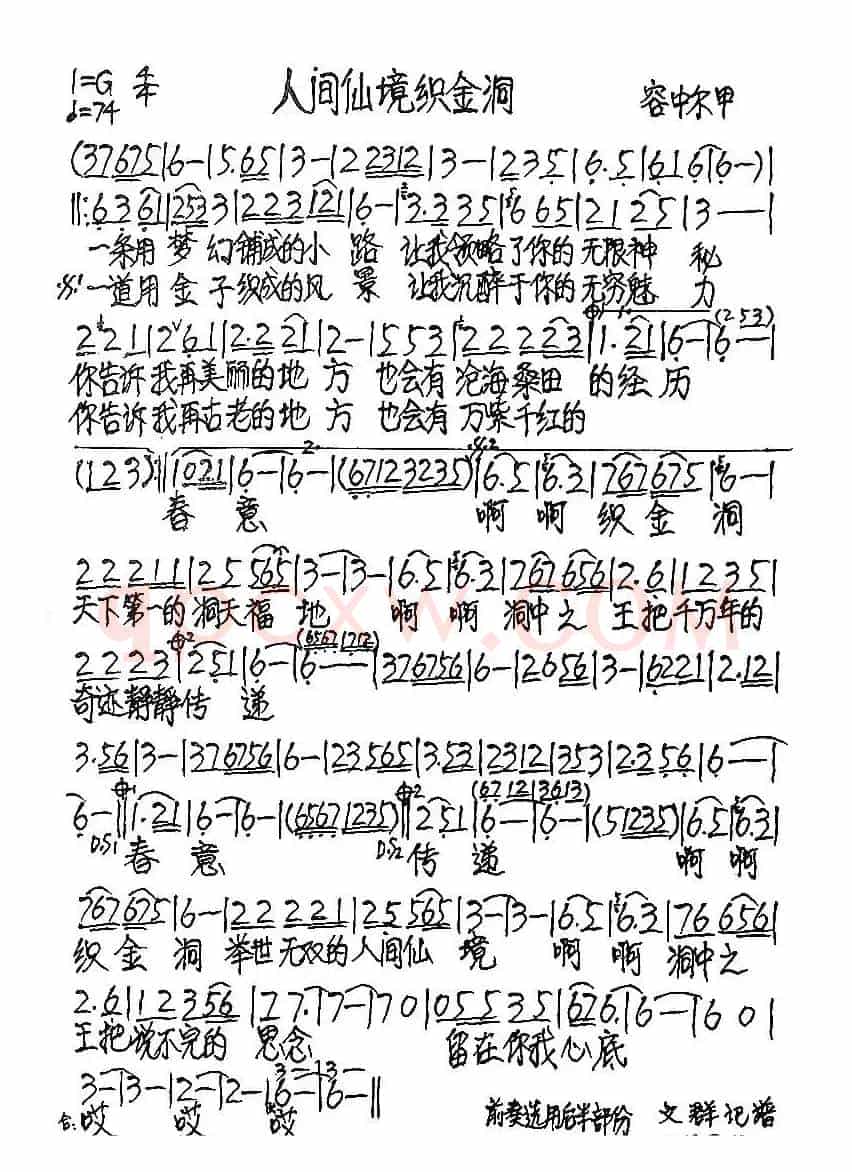 1=G 4/4 人间仙境织金洞 容中尔甲
♩=74
(37675|6-|5.65|3-|22312|3-|235|6.5|6166|6-)|
‖:6361|2533|223121|6-|3.335|665|2125|3--|
一条用梦幻铺成的小路 让我领略了你的无限神秘
𝄋1 一道用金子织成的风景 让我沉醉于你的无穷魅力
2211|261|2.221|2-|553|222223|1.21|6-|6--|
(253)
你告诉我再美丽的地方 也会有沧海桑田的经历
你告诉我再古老的地方 也会有万紫千红的
(123):‖1021|6-|6-|(67123235)|6.5|6.3|767675|6-|
春意 啊啊织金洞
22211|25565|3-|3-|6.5|6.3|767656|2.6|1235|
天下第一的洞天福地 啊啊洞中之王把千万年的
2223|251|6-|6--|37676756|6-|20656|3-|6221|2.121|
(6567 1712)
奇迹静静传递
3.56|3-|3767656|6-|23565|3.53|2312|353|2.356|6--|
6-‖1.21|6-|6-|(65671235)‖251|6-|6-|(51235)|6.5|6.3|
(6712|3613)
D.S1 春意 D.S2 传递 啊啊
767675|6-|222221|25565|3-|3-|6.5|6.3|76656|
织金洞 举世无双的人间仙境 啊啊洞中之
2.6|12356|27.|7-|70|05535|676.|6-|60|
王把说不完的思念 留在你我心底
3-|3-|2-|2-|6-|6-‖
3-|3-
合:哎 哎 哎 前奏选用后半部份 文群记谱
qpcxw.com